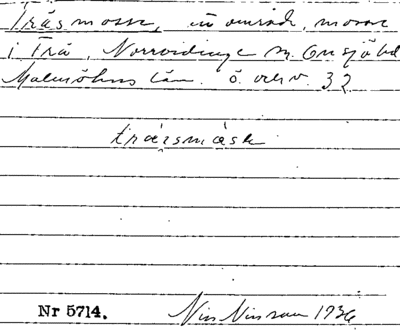 Trås mosse, in område, mosse
i Trå, Norrvidinge sn Onsjö hd
Malmöhus län. ö och v. 32
tråsmåsk
Nr 5714.
Nils Nilsson 1936